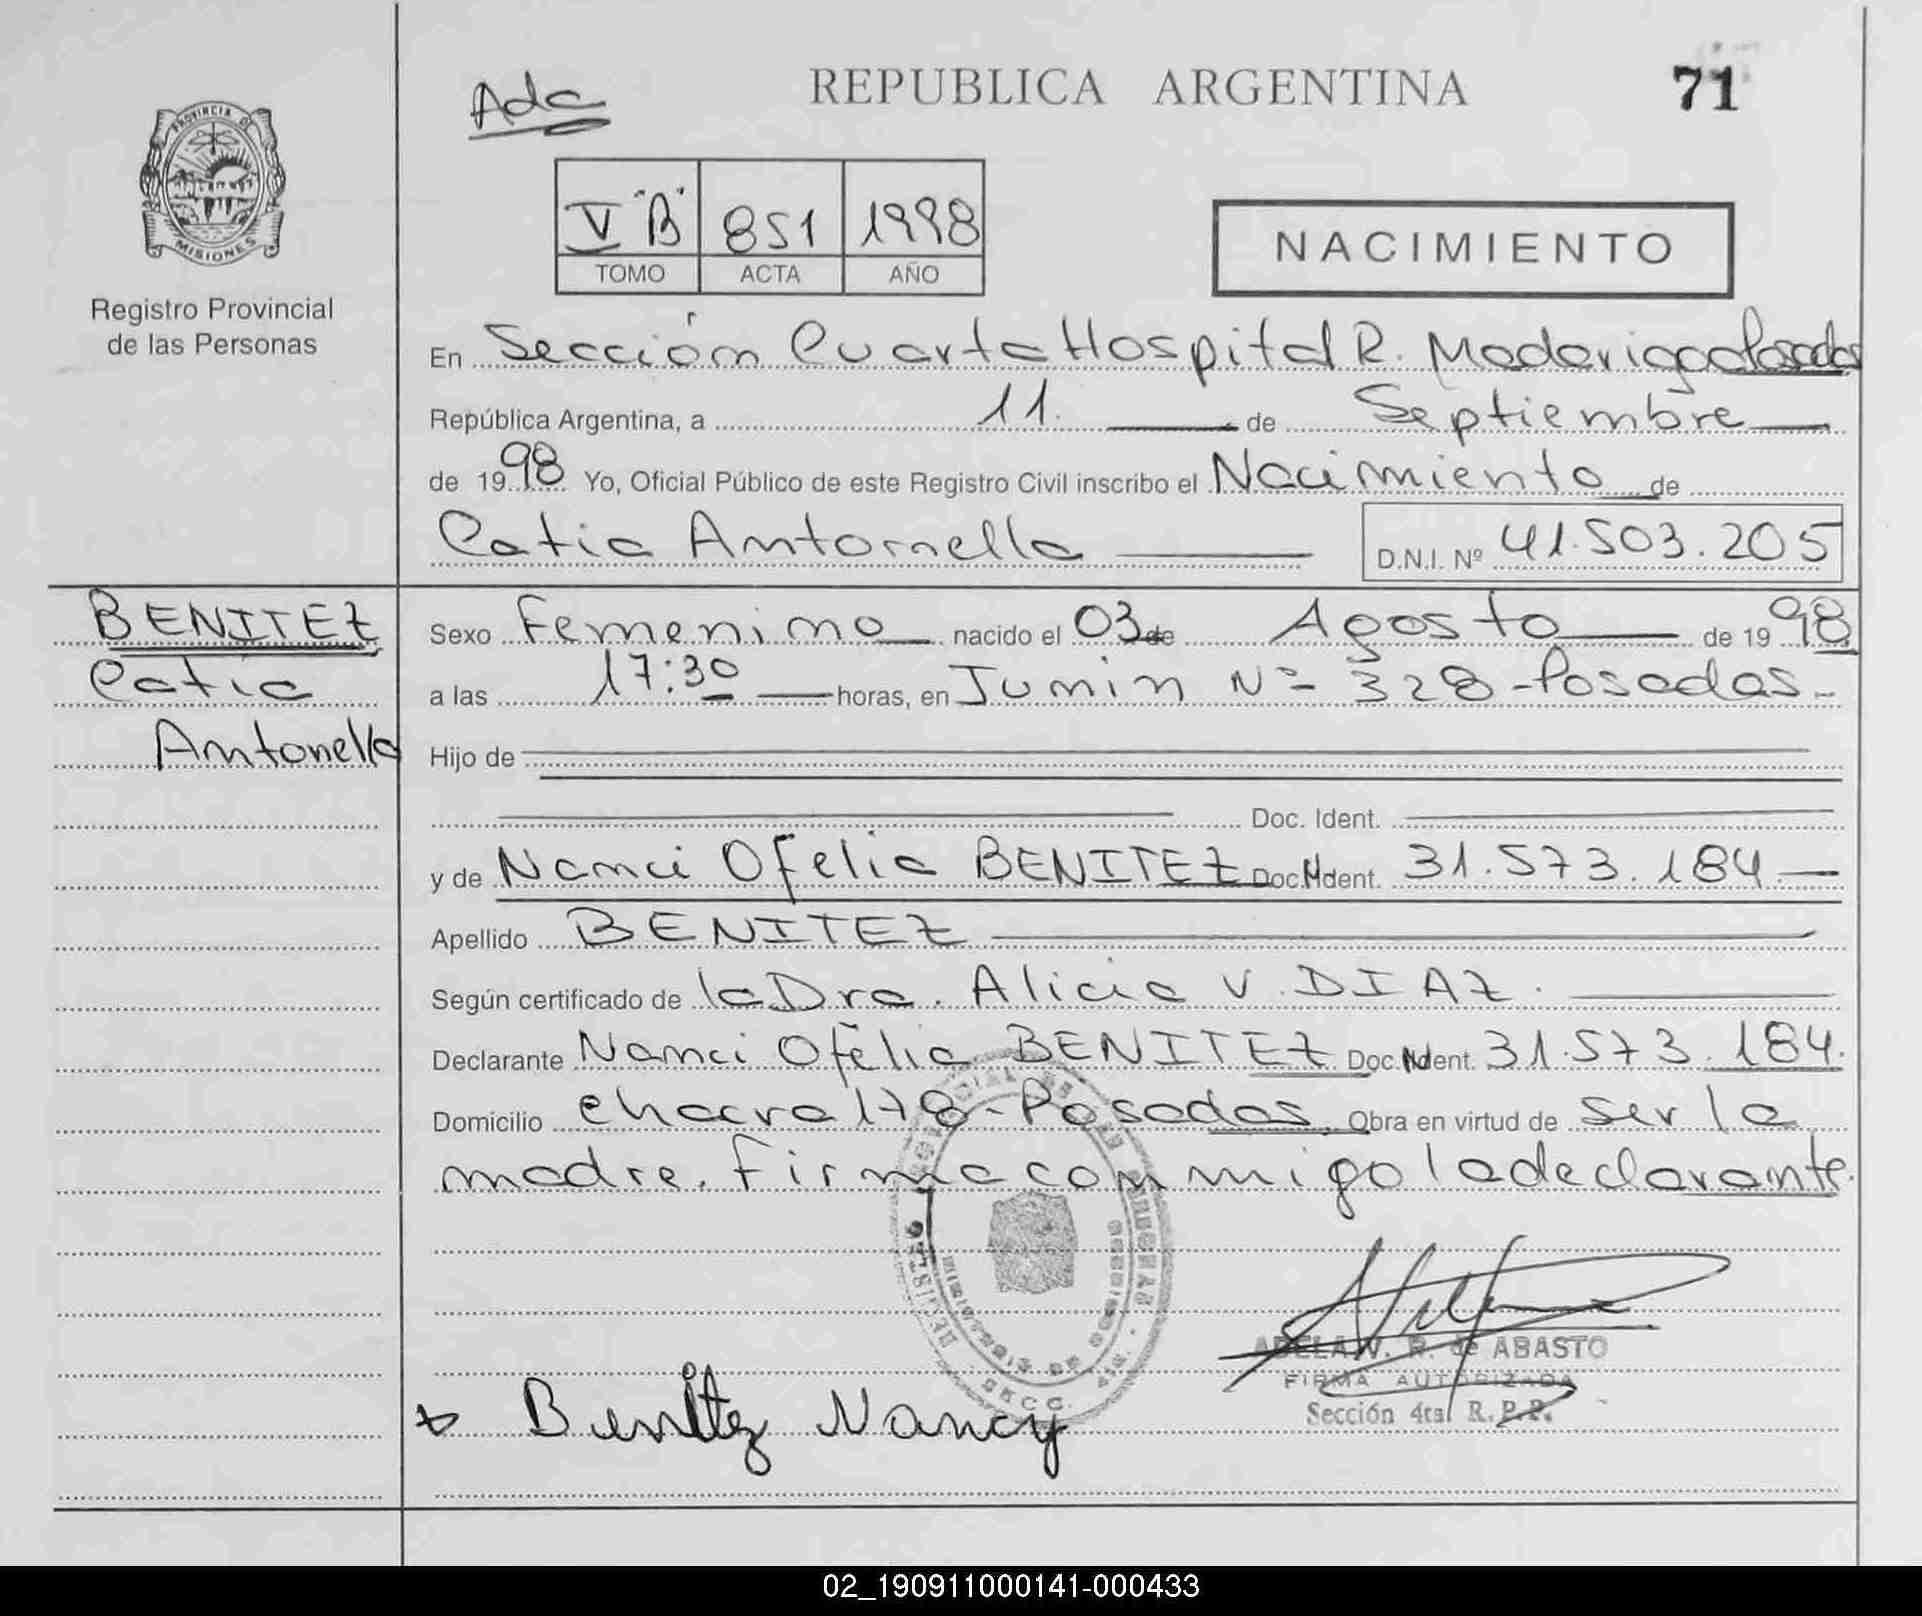 Ada
REPUBLICA ARGENTINA
71
PROVINCIA DE
MISIONES
Registro Provincial
de las Personas
V "B" 851 1998
TOMO ACTA AÑO
NACIMIENTO
En Sección Cuarta Hospital R. Madariaga Posadas
República Argentina, a 11 de Septiembre
de 1998 Yo, Oficial Público de este Registro Civil inscribo el Nacimiento de
Catia Antonella D.N.I. Nº 41.503.205
BENITEZ
Catia
Antonella
Sexo Femenino nacido el 03 de Agosto de 1998
a las 17:30 horas, en Junin Nº 328 - Posadas -
Hijo de
Doc. Ident.
y de Nanci Ofelia BENITEZ Doc. Ident. 31.573.184
Apellido BENITEZ
Según certificado de la Dra. Alicia V. DIAZ.
Declarante Nanci Ofelia BENITEZ Doc. Ident. 31.573.184.
Domicilio chacra 178 - Posadas. Obra en virtud de ser la
madre. Firma conmigo la declarante.
ADELA V. R. de ABASTO
FIRMA AUTORIZADA
Sección 4ta R.P.P.
Benitez Nancy
02_190911000141-000433